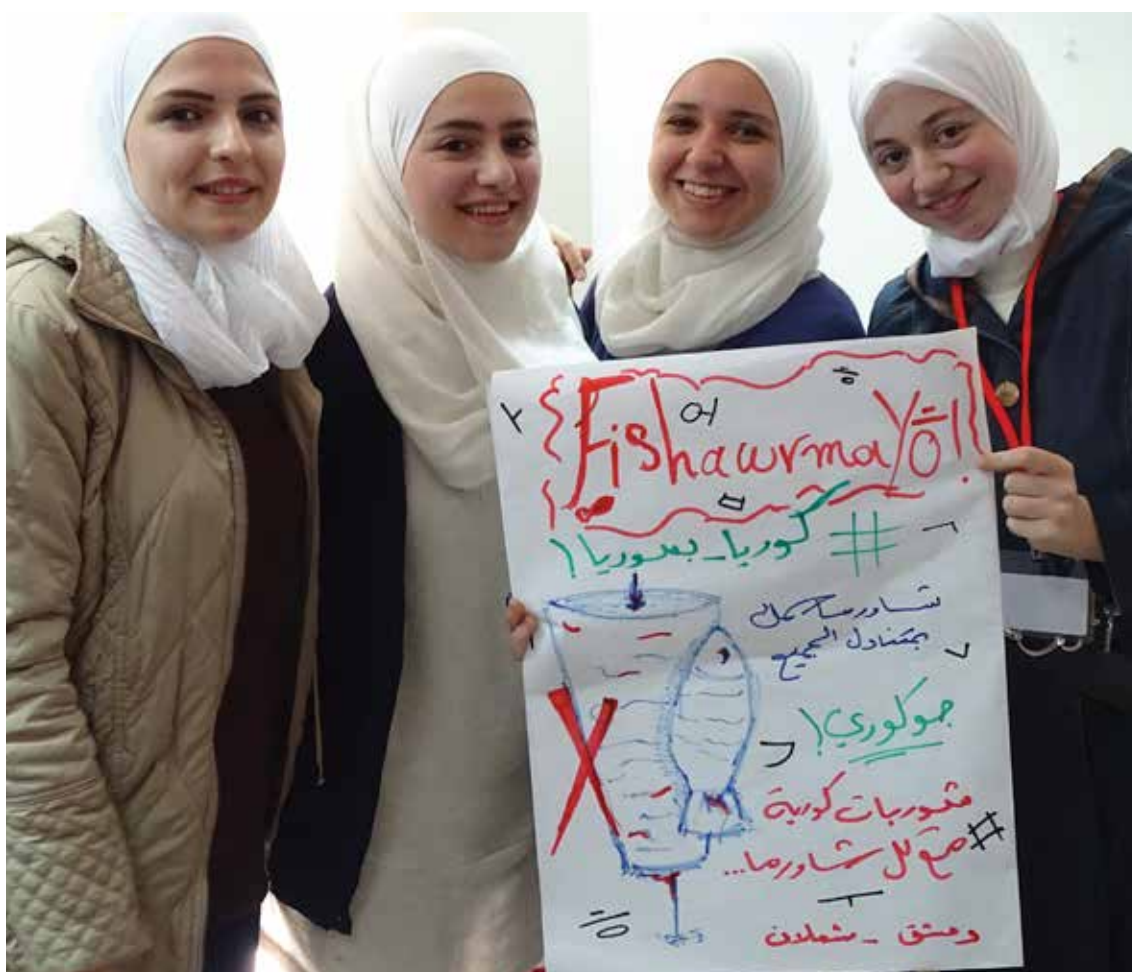 Fishawrma Yō!
# كوريا_بسوريا!
شاورما سمك
بمتناول الجميع
جو كوري!
مشوربات كورية
# مع كل شاورما...
دمشق - شعلان